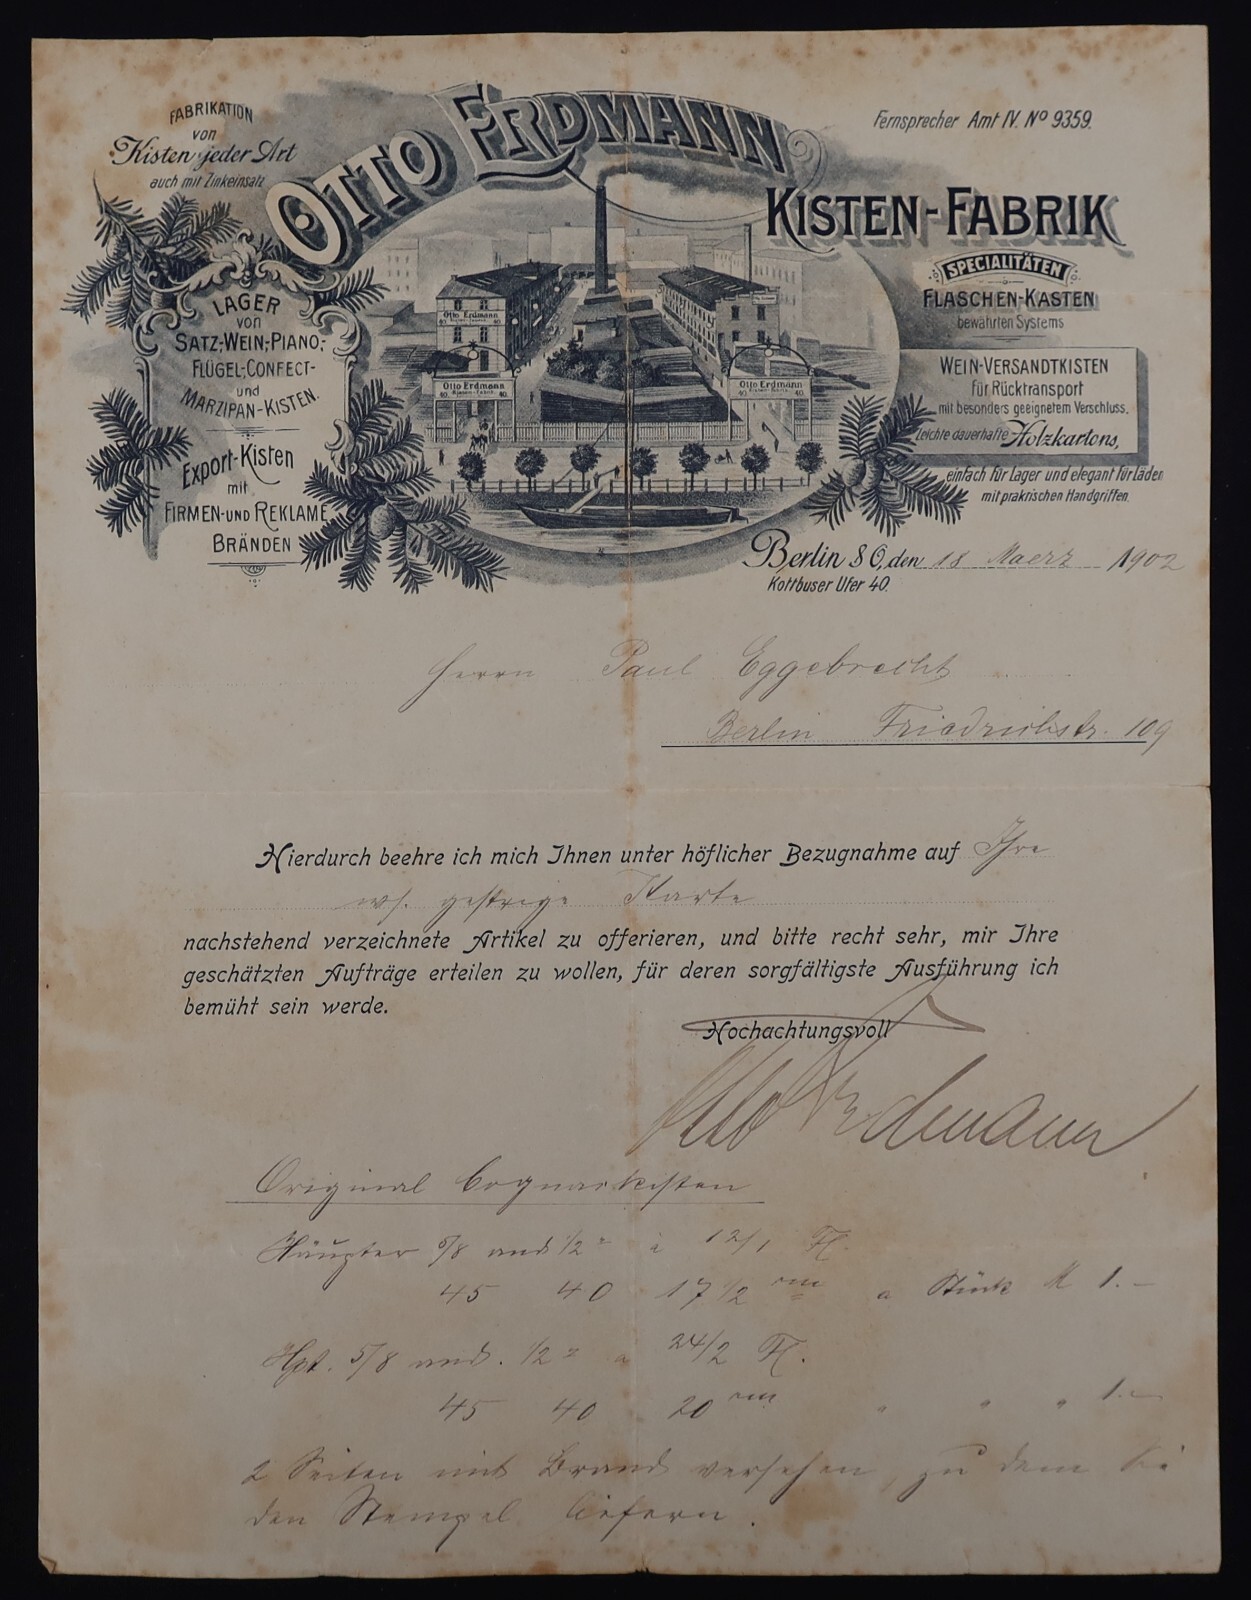 FABRIKATION
von
Kisten jeder Art
auch mit Zinkeinsatz
OTTO ERDMANN
Fernsprecher Amt IV. No 9359.
KISTEN-FABRIK
SPECIALITÄTEN
FLASCHEN-KASTEN
bewährten Systems
LAGER
von
SATZ-, WEIN-, PIANO-,
FLÜGEL-, CONFECT-
und
MARZIPAN-KISTEN.
Export-Kisten
mit
FIRMEN- UND REKLAME
BRÄNDEN
Otto Erdmann
Otto Erdmann
40. Kisten-Fabrik 40.
Otto Erdmann
40. Kisten-Fabrik 40.
WEIN-VERSANDTKISTEN
für Rücktransport
mit besonders geeignetem Verschluss.
Leichte dauerhafte Holzkartons,
einfach für Lager und elegant für Läden
mit prakrischen Handgriffen.
Berlin SO, den 18 Maerz 1902
Kottbuser Ufer 40.
Herrn Paul Eggebrecht
Berlin Friedrichstr. 109
Hierdurch beehre ich mich Ihnen unter höflicher Bezugnahme auf Ihre
gestrige Karte
nachstehend verzeichnete Artikel zu offerieren, und bitte recht sehr, mir Ihre
geschätzten Aufträge erteilen zu wollen, für deren sorgfältigste Ausführung ich
bemüht sein werde.
Hochachtungsvoll
Otto Erdmann
Original Cognackisten
Häupter 5/8 and. 1/2" à 12/1 Fl.
45 40 17 1/2 cm a Stück M 1.-
Hpt. 5/8 and. 1/2" a 24/2 Fl.
45 40 20 cm " " " 1.-
2 Seiten mit Brand versehen, zu dem Sie
den Stempel liefern.